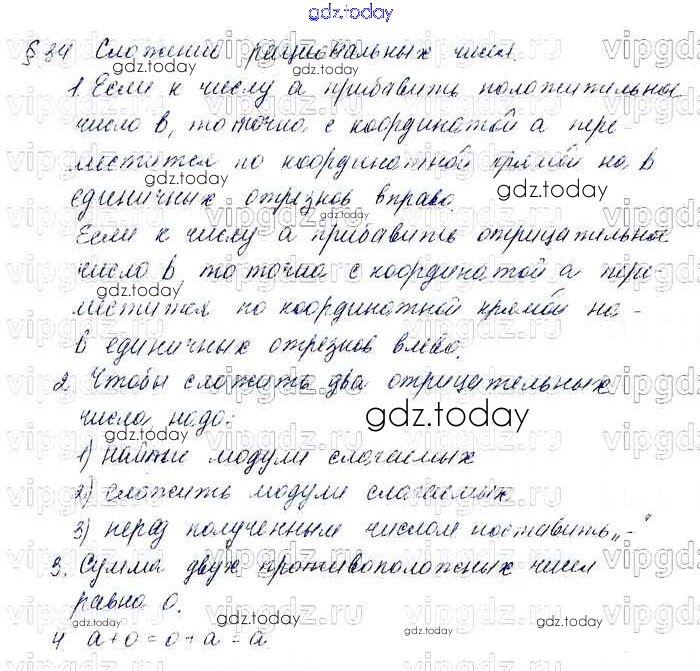 gdz.today
§ 34 Сложение рациональных чисел.
1. Если к числу а прибавить положительное
число в, то точка с координатой а пере-
местится по координатной прямой на в
единичных отрезков вправо.
Если к числу а прибавить отрицательное
число в то точка с координатой а пере-
местится по координатной прямой на -
в единичных отрезков влево.
2. Чтобы сложить два отрицательных
числа, надо:
1) найти модули слагаемых
2) сложить модули слагаемых
3) перед полученным числом поставить „-“
3. Сумма двух противоположных чисел
равна 0.
4 а + 0 = 0 + а = а